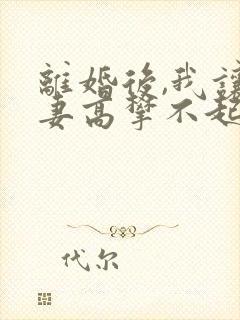 離婚後,我讓
妻高攀不起
代尔